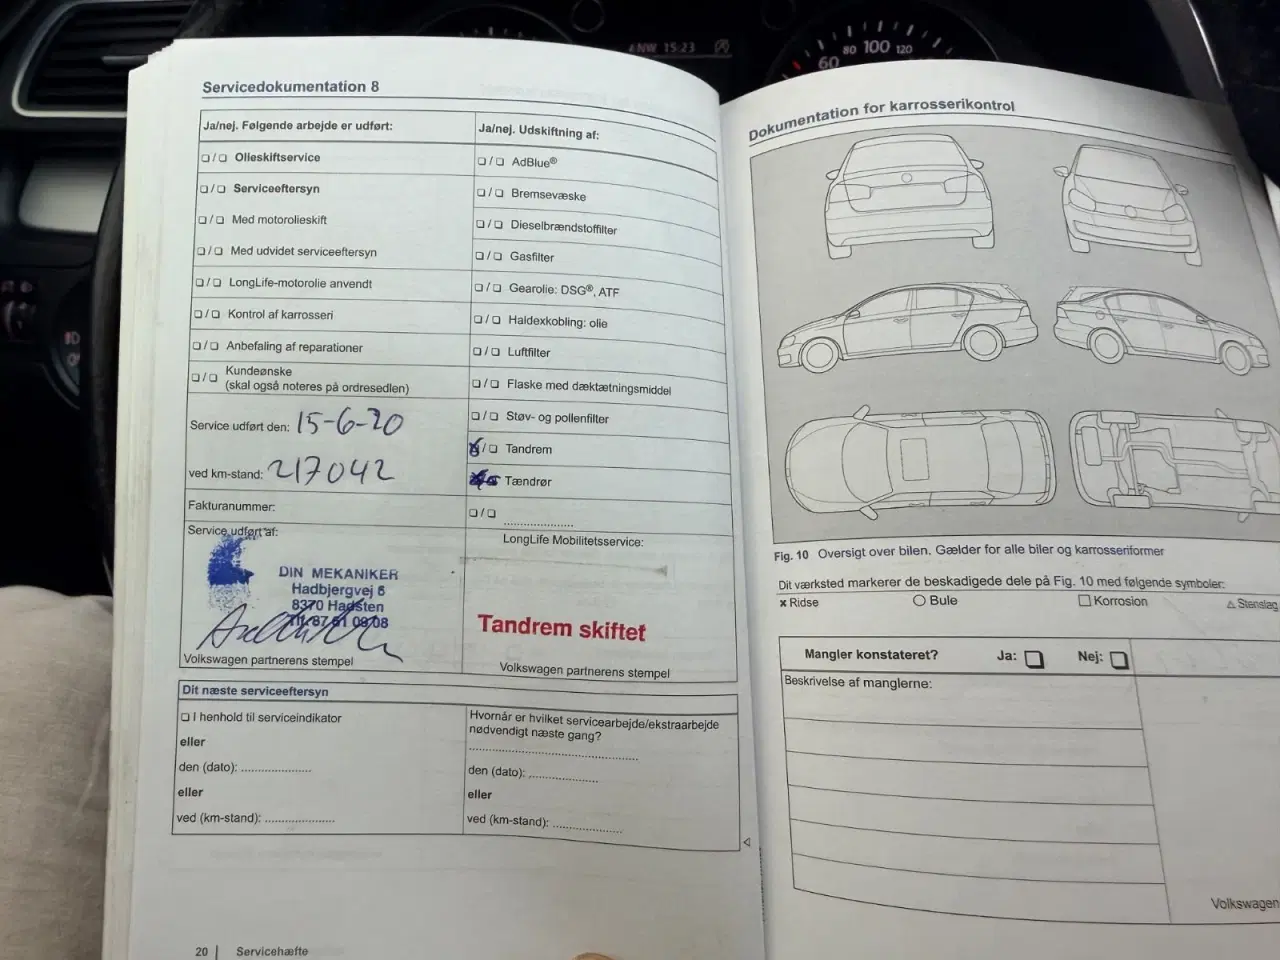 ANW 15:23
60 80 100 120
Servicedokumentation 8
Ja/nej. Følgende arbejde er udført:
❏ / ❏ Olieskiftservice
❏ / ❏ Serviceeftersyn
❏ / ❏ Med motorolieskift
❏ / ❏ Med udvidet serviceeftersyn
❏ / ❏ LongLife-motorolie anvendt
❏ / ❏ Kontrol af karrosseri
❏ / ❏ Anbefaling af reparationer
❏ / ❏ Kundeønske
(skal også noteres på ordresedlen)
Service udført den: 15-6-20
ved km-stand: 217042
Fakturanummer:
Service udført af:
DIN MEKANIKER
Hadbjergvej 6
8370 Hadsten
Tlf. 87 61 09 08
Volkswagen partnerens stempel
Ja/nej. Udskiftning af:
❏ / ❏ AdBlue®
❏ / ❏ Bremsevæske
❏ / ❏ Dieselbrændstoffilter
❏ / ❏ Gasfilter
❏ / ❏ Gearolie: DSG®, ATF
❏ / ❏ Haldexkobling: olie
❏ / ❏ Luftfilter
❏ / ❏ Flaske med dæktætningsmiddel
❏ / ❏ Støv- og pollenfilter
☒ / ❏ Tandrem
Tændrør
❏ / ❏ ......................
LongLife Mobilitetsservice:
Tandrem skiftet
Volkswagen partnerens stempel
Dit næste serviceeftersyn
❏ I henhold til serviceindikator
eller
den (dato): ......................
eller
ved (km-stand): ......................
Hvornår er hvilket servicearbejde/ekstraarbejde
nødvendigt næste gang?
......................................................
den (dato): ......................
eller
ved (km-stand): ......................
20 | Servicehæfte
Dokumentation for karrosserikontrol
Fig. 10 Oversigt over bilen. Gælder for alle biler og karrosseriformer
Dit værksted markerer de beskadigede dele på Fig. 10 med følgende symboler:
× Ridse ○ Bule □ Korrosion △ Stenslag
Mangler konstateret? Ja: ❏ Nej: ❏
Beskrivelse af manglerne:
Volkswagen